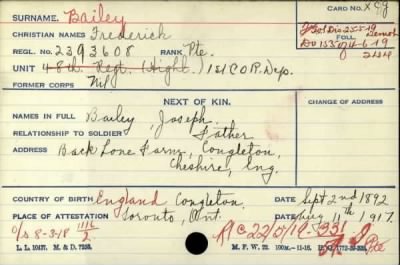 SURNAME. Bailey CARD NO.
CHRISTIAN NAMES Frederick
REGL. NO. 2393608 RANK Pte. FOLL
UNIT 48th Regt. (Hight.) 1st C.O.R. Dep.
FORMER CORPS Nil
NEXT OF KIN. CHANGE OF ADDRESS
NAMES IN FULL Bailey, Joseph.
RELATIONSHIP TO SOLDIER Father
ADDRESS Back Lane Farm, Congleton,
Cheshire, Eng.
COUNTRY OF BIRTH England Congleton. DATE Sept 2nd 1892
PLACE OF ATTESTATION Toronto, Ont. DATE Aug 11th 1917.
O/S 8-3-18 1116/2
L. L. 10437. M. & D. 7235. M. F. W. 22. 100M.—11-16.